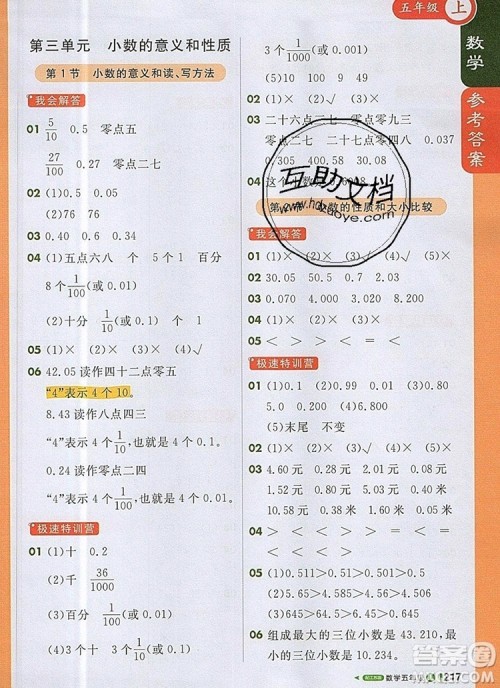 五年级 上
数学
参考答案
第三单元 小数的意义和性质
第1节 小数的意义和读、写方法
我会解答
01 5/10 0.5 零点五
27/100 0.27 零点二七
02 (1)0.5 0.05 0.15
(2)76 76
03 0.9 0.09 0.39
04 (1)五点六八 个 5 1 百分
3 1/100(或0.01) 8
(2)十分 1/100(或0.01) 个 1
05 (1)× (2)× (3)√
06 42.05读作四十二点零五
“4”表示4个10。
8.43读作八点四三
“4”表示4个1/10,也就是4个0.1。
0.24读作零点二四
“4”表示4个1/100,也就是4个0.01。
极速特训营
01 (1)十 0.2
(2)千 36/1000
(3)百分 1/100(或0.01)
(4)10 10 10
3个1/100(或0.01)
(5)0.15 1.5
02 (1)× (2)× (3)√
03 二十六点二六 五点零九三
零点零七 二十二点零四 0.037
0.31 36.36 40.08
04 这个小数是
互助文档
第 小数的性质和大小比较
我会解答
01 (1)× (2)× (3)√ (4)√ (5)×
02 30.05 50.1 0.7
03 0.40 5.70 3.00 8.20
04 3.220 0.030 6.000 4.020
05 > < > < < <
极速特训营
01 (1)0.1 0.99 (2)0.01 0.999
(5)末尾 不变
02 (1)× (2)× (3)√ (4)√
03 4.60元 0.28元 0.01元 2.05元
0.10米 1.25米 0.04米 0.40米
10.58米 1.30米 0.15米 0.08米
04 > < < > = <
05 (1)0.511>0.51>0.501>0.5
(6)645>64.5>6.45>0.645
06 组成最大的三位小数是43.210,最
小的三位小数是10.234。
数学五年级 上 217
答案圈